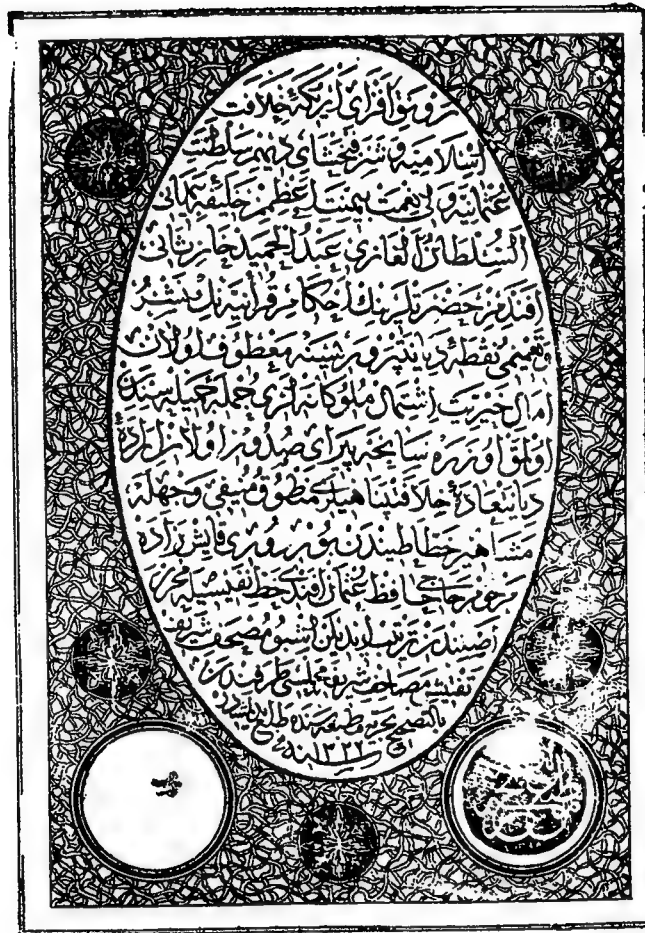 رونق افزاى اريكهٔ خلافت
اسلاميه و شرفبخشاى ديهيم سلطنت
عثمانيه ولى نعمت بيمنت اعظم خليفهٔ
السلطان الغازى عبد الحميد خان ثانى
افندمز حضرتلرينك احكام قرآنيه نك نشر
وتعميمى نقطهٔ ديانتپرورىسنه معطوف اولان
امال خيريت اشتمال ملوكانه لرى جملهٔ جميله سندن
اولمق اوزره سانحه پيراى صدور اولان اراده
ديانتعادهٔ خلافتپناهيلرى منطوق منيفى وجهله
مشاهير خطاطيندن بوردورى قايش زاده
مرحوم حاجى حافظ عثمان افندى خط نفيسيله محرر
اصلندن ترتيب ايديلن اشبو مصحف شريف
تفتيش مصاحف شريفه مجلسى طرفندن
بالتصحيح بحريه مطبعه سنده طبع
سنه ١٣٢٢